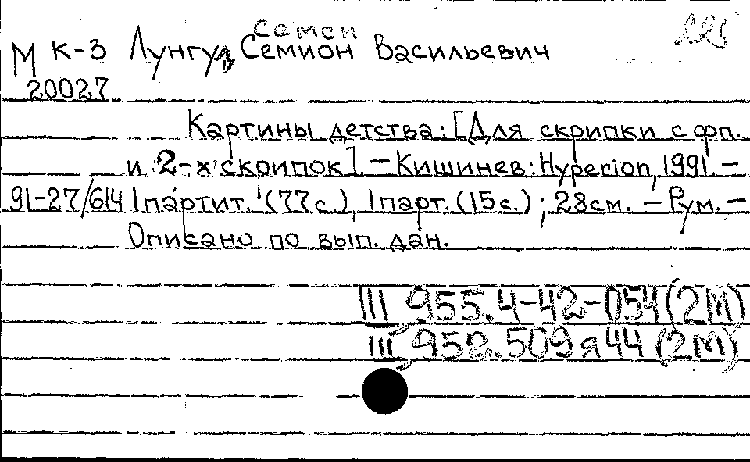 семен
М К-3 Лунгул, Семион Васильевич
20027
Картины детства: [Для скрипки с фп.
и 2-х скрипок] – Кишинев: Hyperion, 1991. –
91-27/614 1 партит. (77с.), 1 парт. (15с.); 28см. – Рум. –
Описано по вып. дан.
III 955.4-42-054 (2М)
III 952.509я44 (2М)